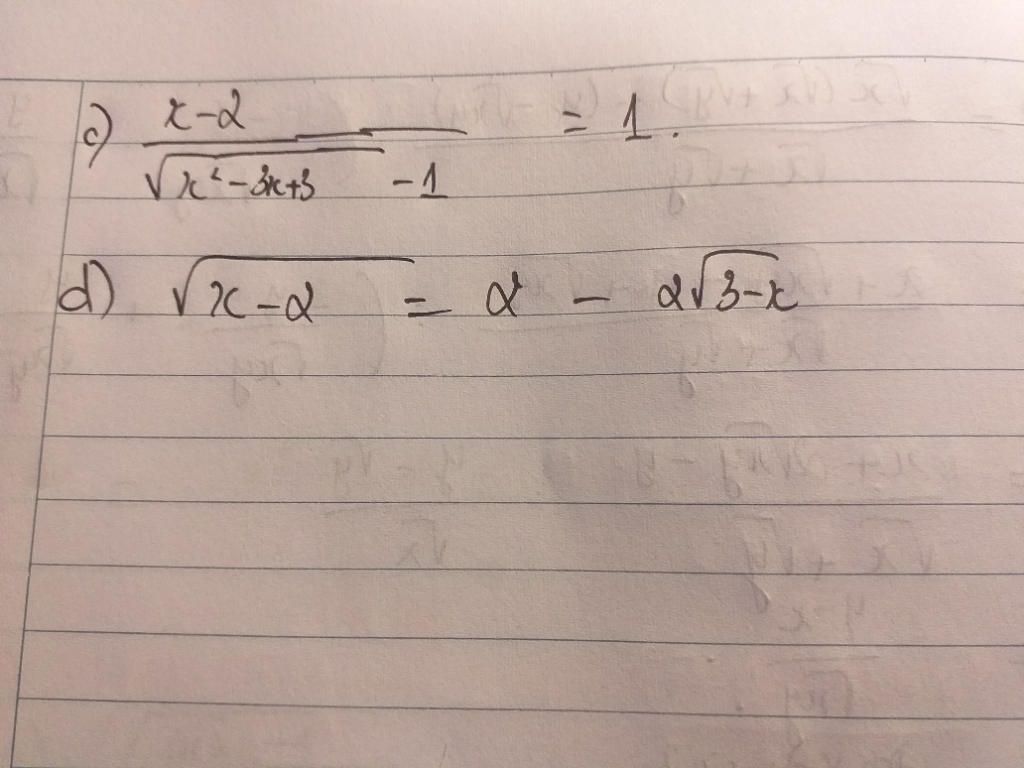 c) (x-2)/(√(x²-3x+3) -1) = 1.
d) √(x-2) = 2 - 2√(3-x)